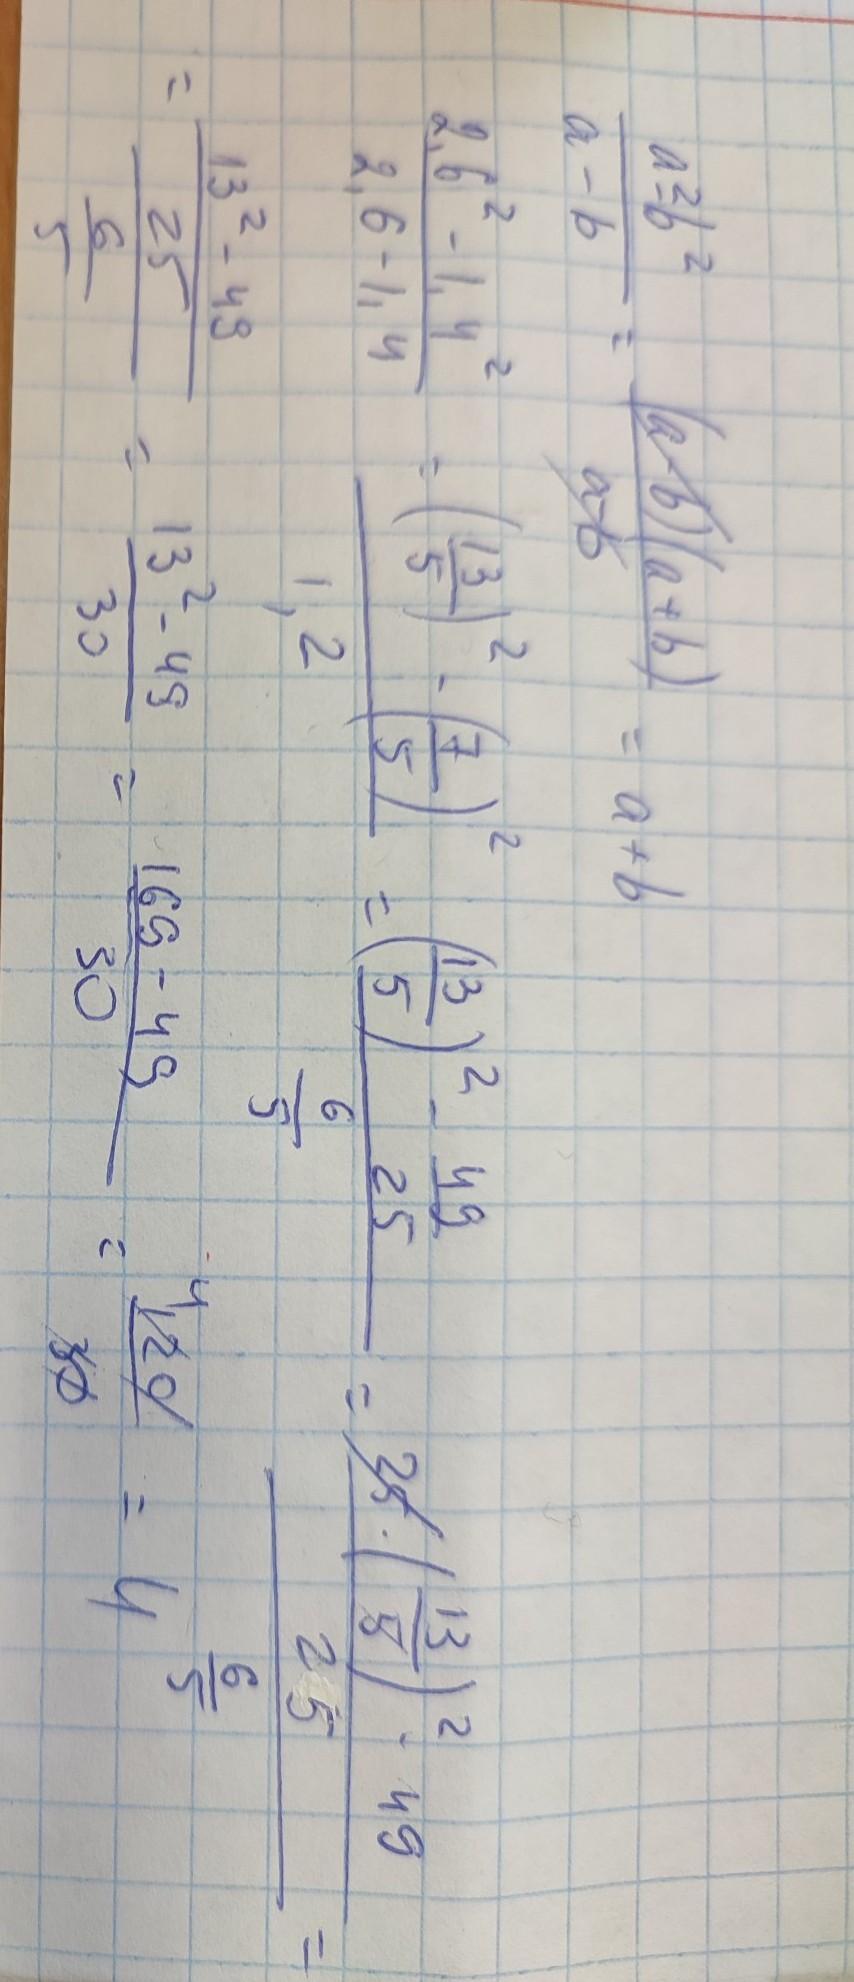 (a²-b²)/(a-b) = ((a-b)(a+b))/(a-b) = a+b
(2,6²-1,4²)/(2,6-1,4) = ((13/5)²-(7/5)²)/(1,2) = ((13/5)²-49/25)/(6/5) = ((25·(13/5)²-49)/25)/(6/5) =
= ((13²-49)/25)/(6/5) = (13²-49)/30 = (169-49)/30 = 120/30 4 = 4